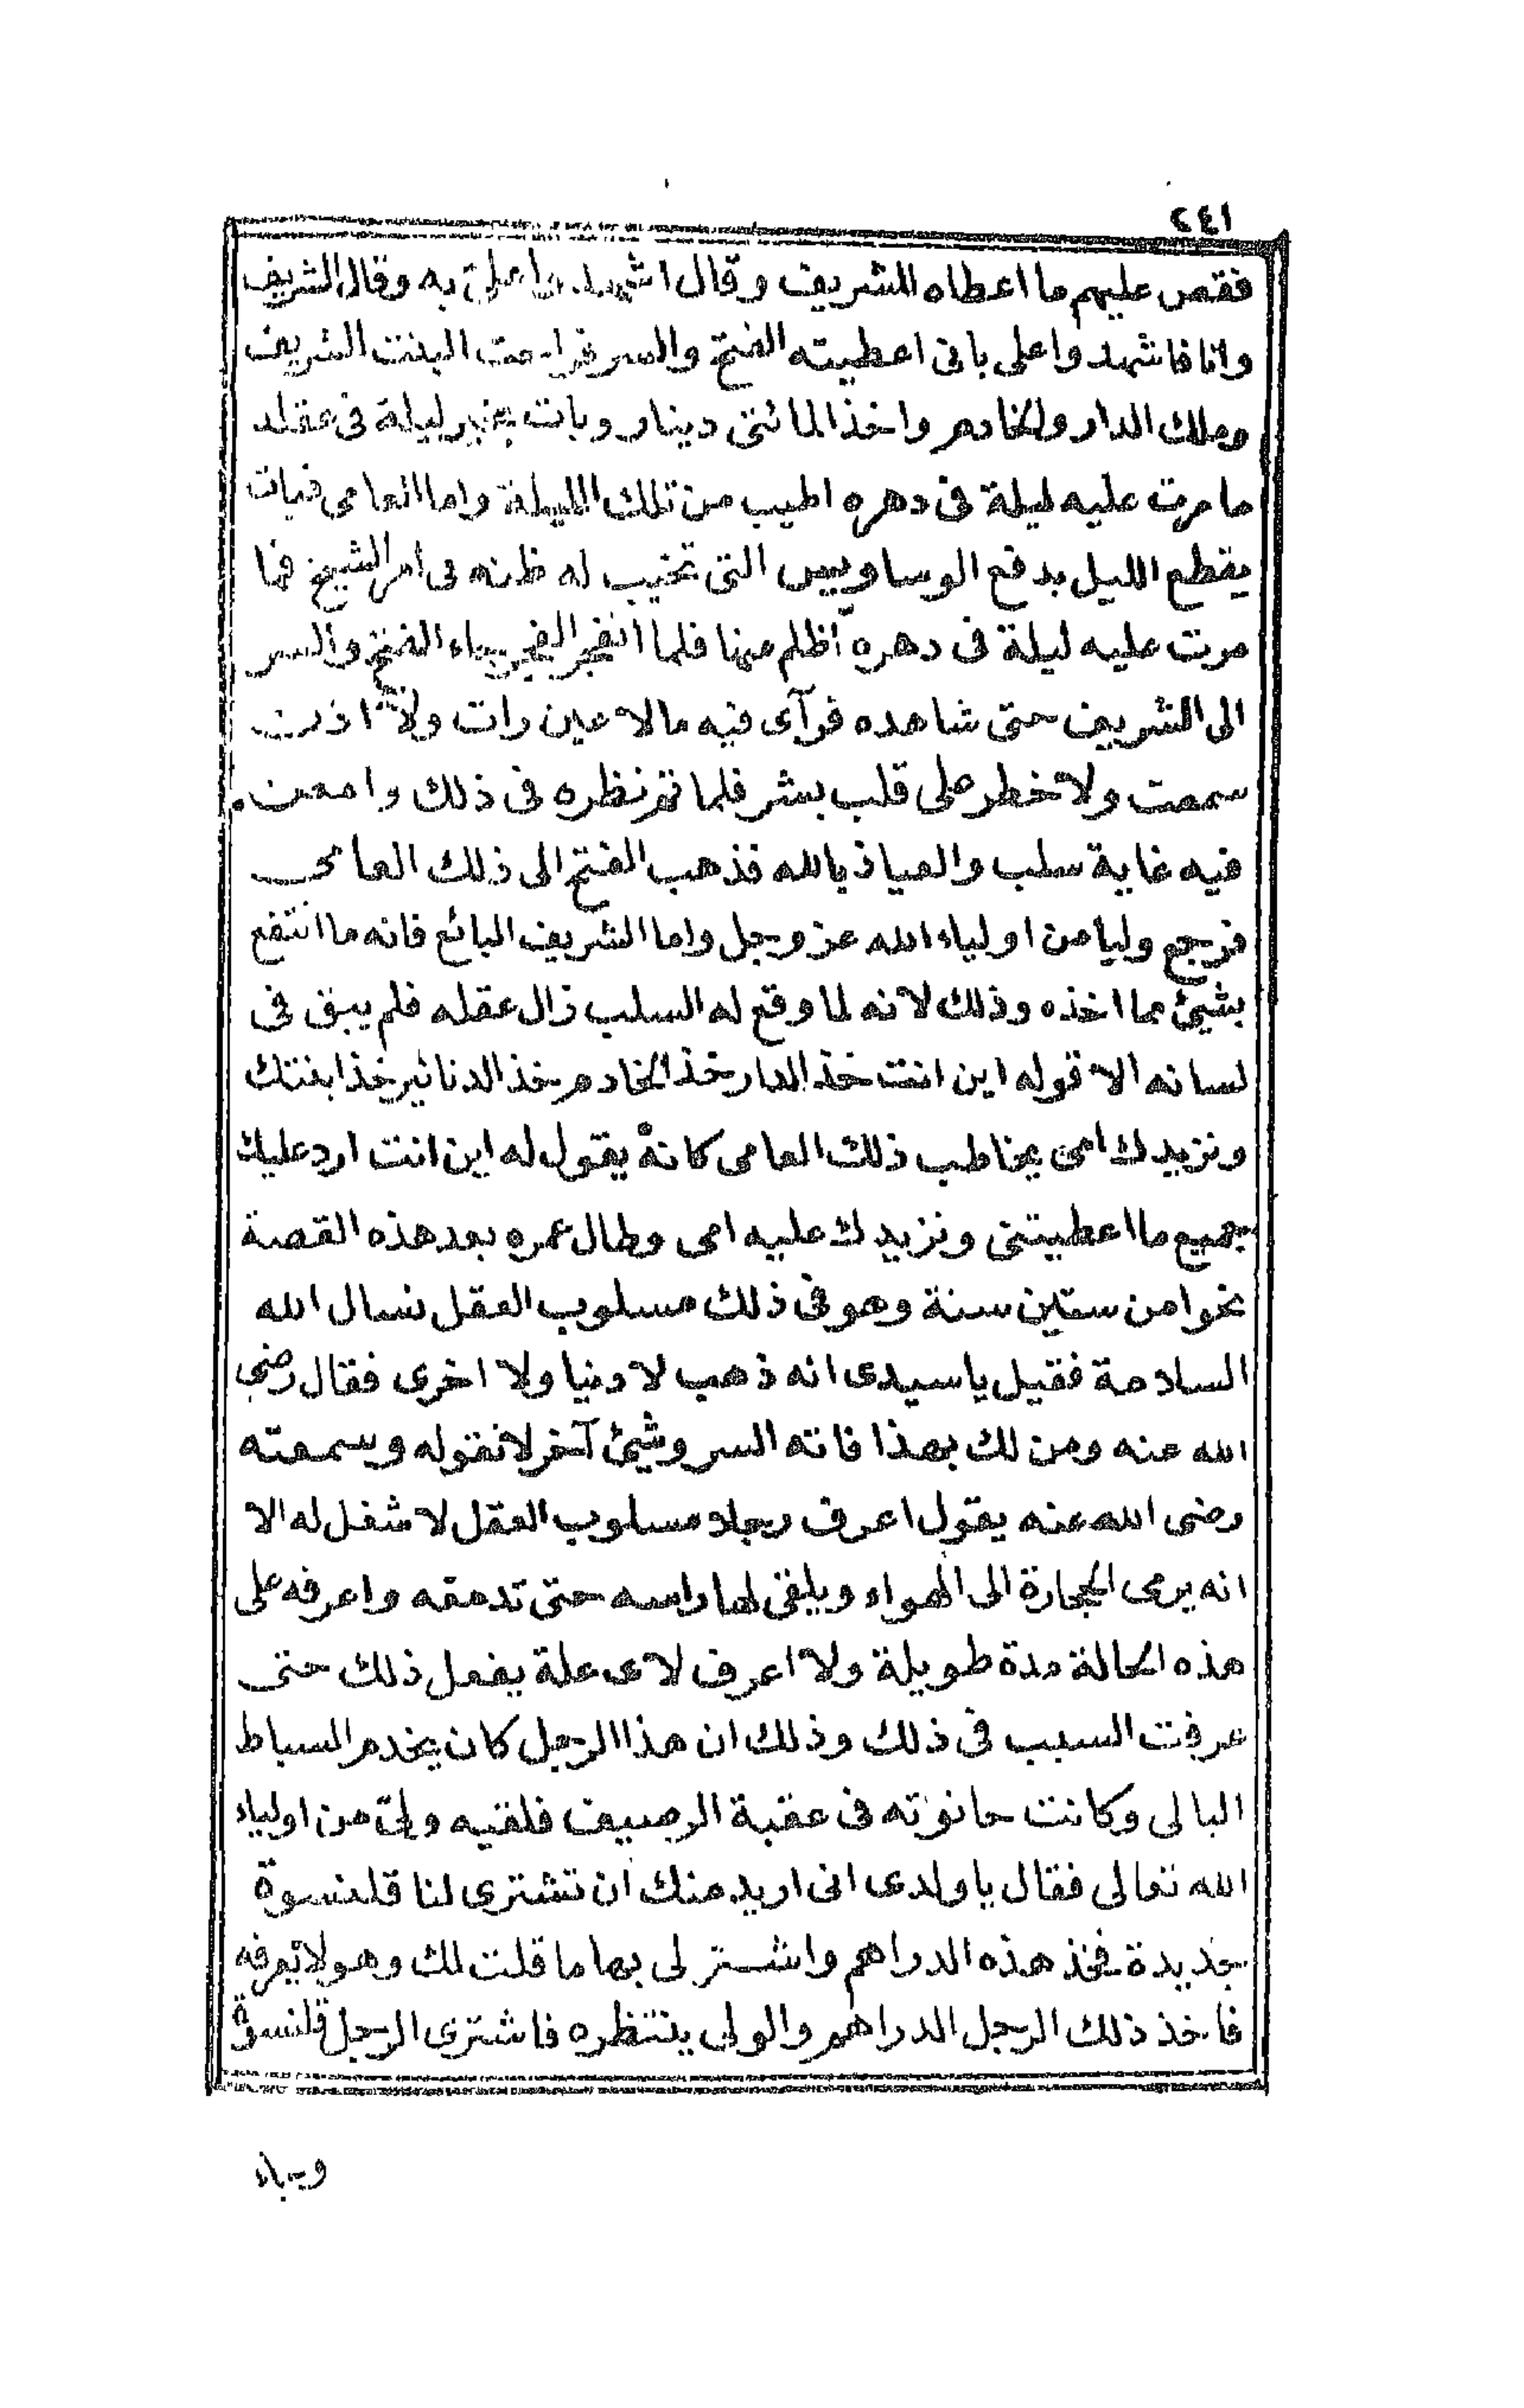 ٢٤١
فقص عليهم ما اعطاه للشريف وقال اشهدوا على به وقال الشريف
وانا فاشهدوا على بانى اعطيته الفتح والسر فراحت البنت للشريف
وملك الدار والخادم واخذ المائتى دينار وبات بخير ليلة فى عقله
ما مرت عليه ليلة فى دهره اطيب من تلك الليلة واما العامى فبات
يقطع الليل بدفع الوساويس التى تخيب له ظنه فى امر الشيخ فما
مرت عليه ليلة فى دهره أظلم منها فلما انفجر الفجر جاء الفتح والسر
الى الشريف حتى شاهده فرآى فيه مالا عين رات ولا اذن
سمعت ولا خطر على قلب بشر فلما تم نظره فى ذلك وامعن
فيه غاية سلب والعياذ بالله فذهب الفتح الى ذلك العامى
فرجع وليا من اولياء الله عز وجل واما الشريف البائع فانه ما انتفع
بشيئ مما اخذه وذلك لانه لما وقع له السلب زال عقله فلم يبق فى
لسانه الا قوله اين انت خذ الدار خذ الخادم خذ الدنانير خذ ابنتك
ونزيدك امى يخاطب ذلك العامى كانه يقول له اين انت ارد عليك
جميع ما اعطيتنى ونزيدك عليه امى وطال عمره بعد هذه القصة
نحوا من ستين سنة وهو فى ذلك مسلوب العقل نسال الله
السلامة فقيل ياسيدى انه ذهب لا دنيا ولا اخرى فقال رضى
الله عنه ومن لك بهذا فاته السر وشيئ آخر لا نقوله وسمعته
رضى الله عنه يقول اعرف رجلا مسلوب العقل لا شغل له الا
انه يرمى الحجارة الى الهواء ويلقى لها راسه حتى تدمقه واعرفه على
هذه الحالة مدة طويلة ولا اعرف لاى علة يفعل ذلك حتى
عرفت السبب فى ذلك وذلك ان هذا الرجل كان يخدم السباط
البالى وكانت حانوته فى عقبة الرصيف فلقيه ولى من اولياء
الله تعالى فقال ياولدى انى اريد منك ان تشترى لنا قلنسوة
جديدة فخذ هذه الدراهم واشتر لى بها ما قلت لك وهو لا يعرفه
فاخذ ذلك الرجل الدراهم والولى ينتظره فاشترى الرجل قلنسوة
وجاء